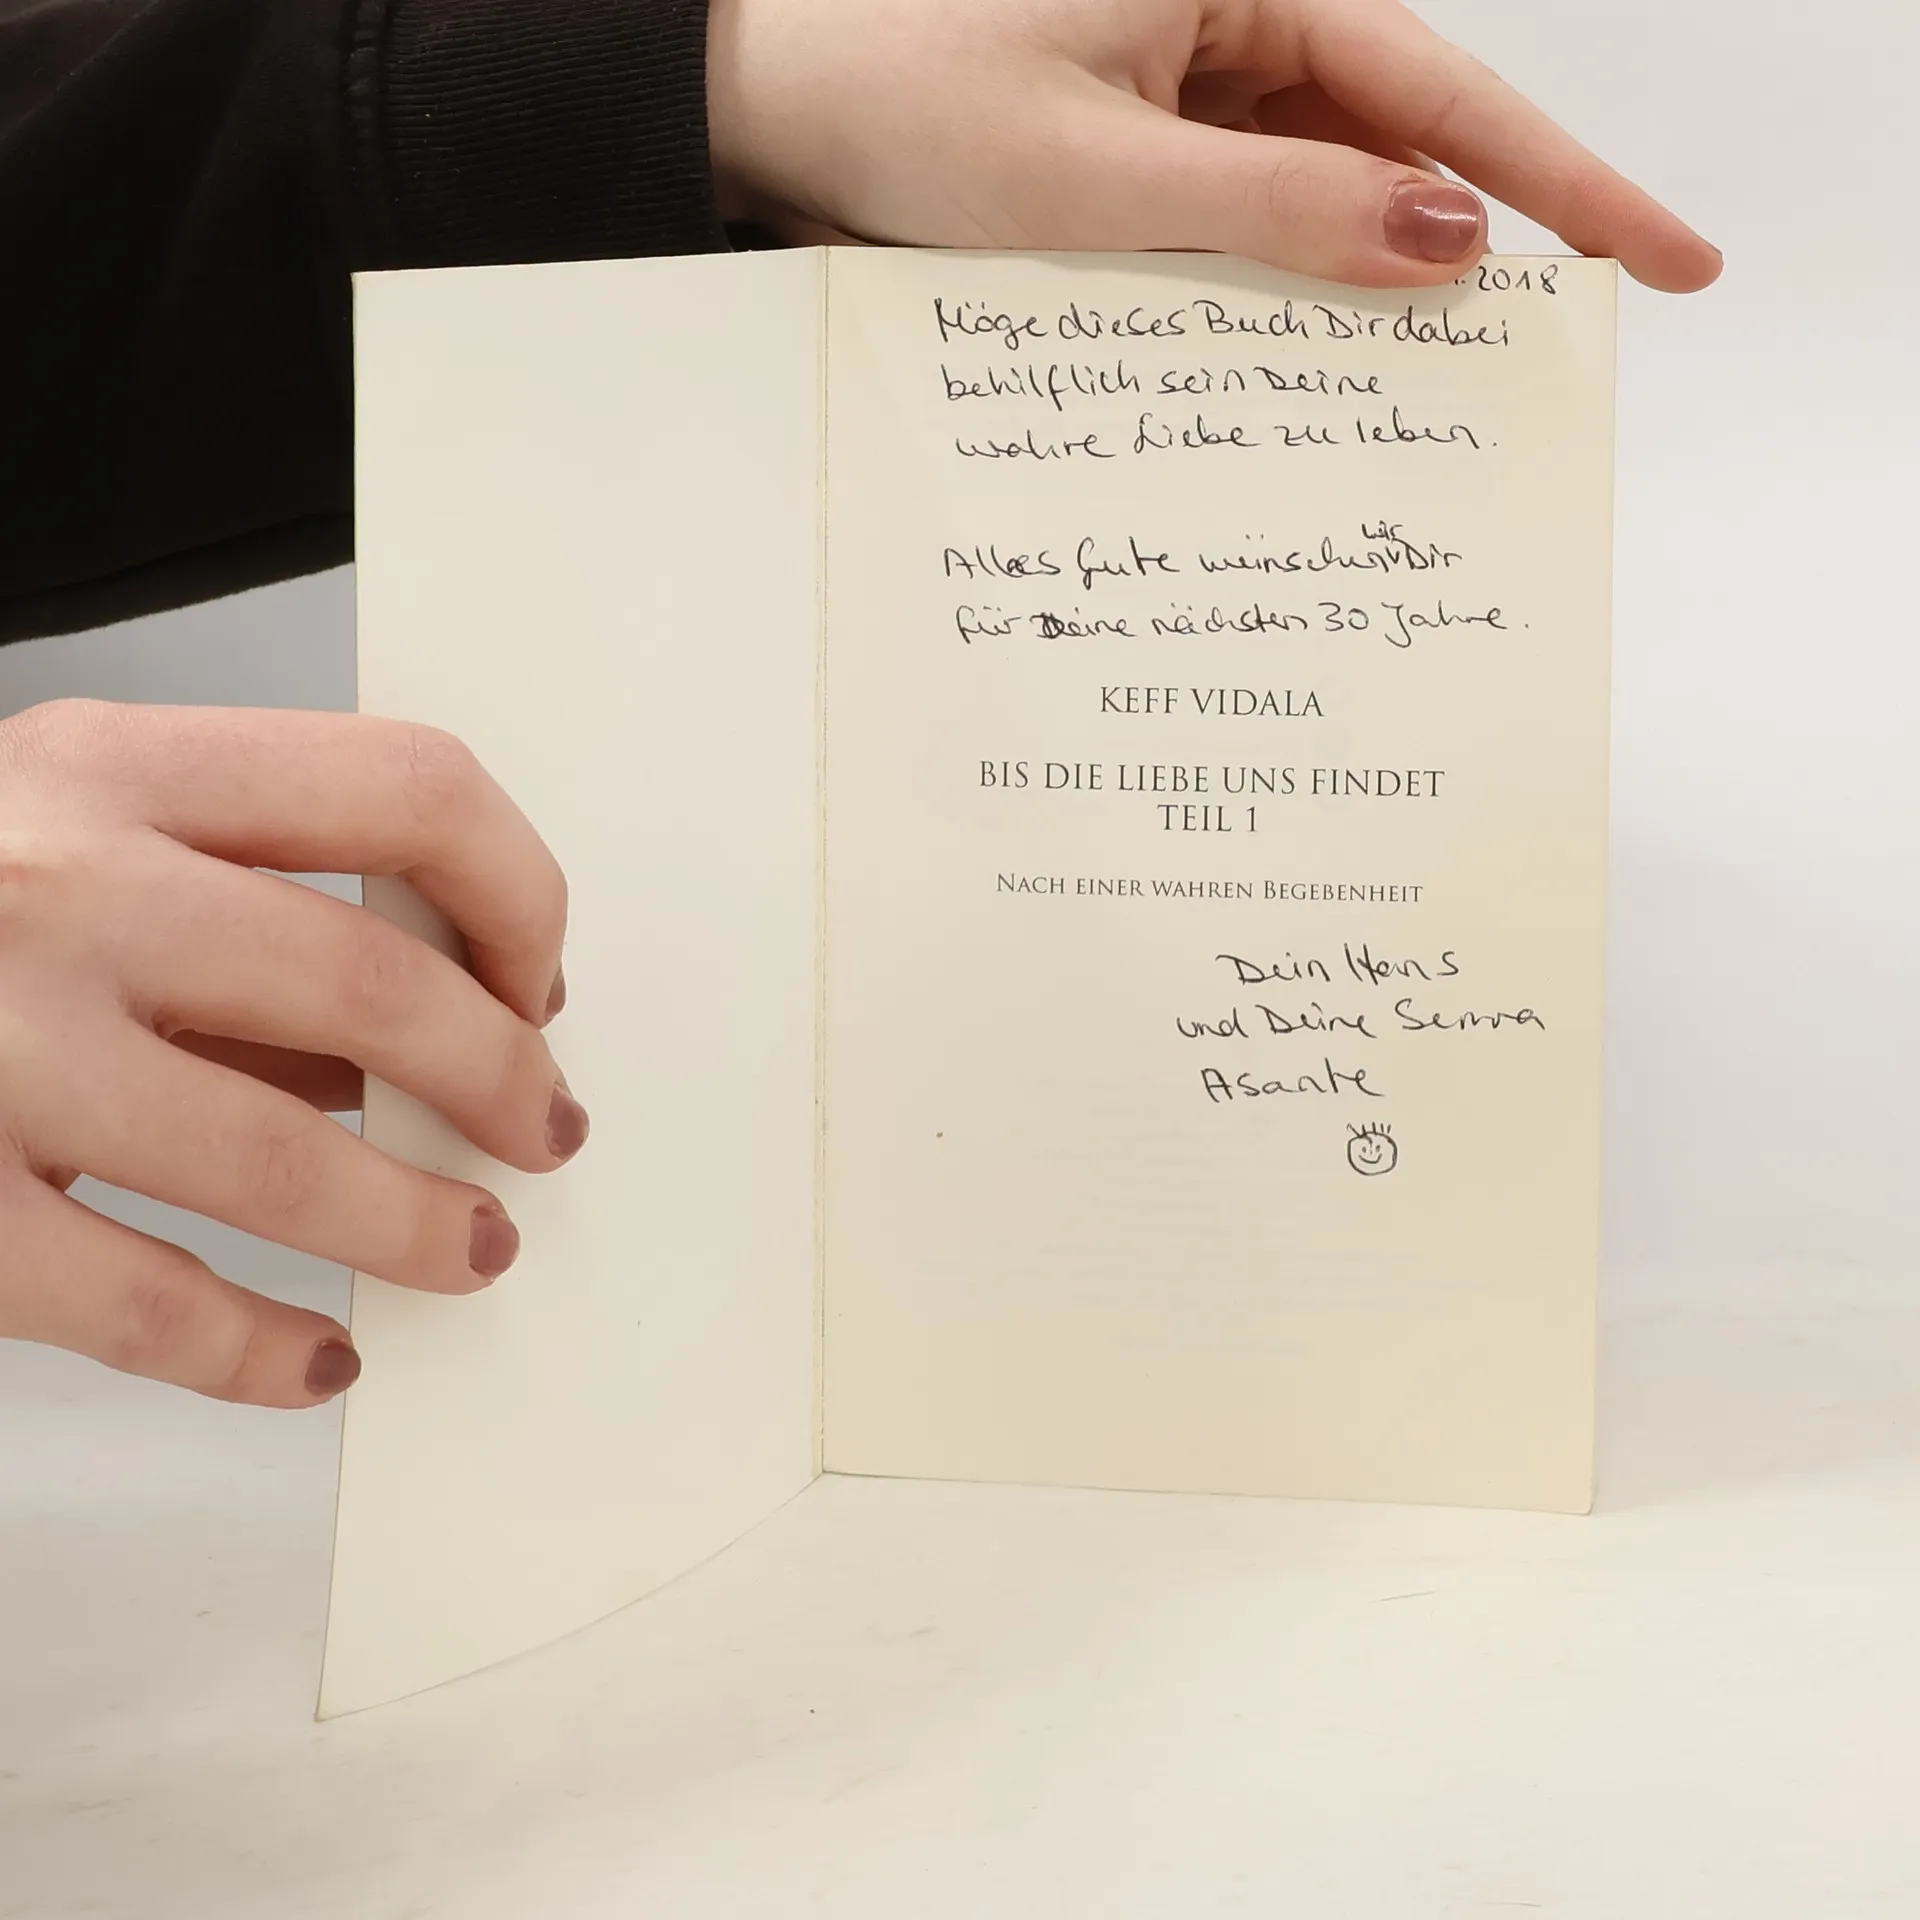 2018
Möge dieses Buch Dir dabei
behilflich sein Deine
wahre Liebe zu leben.
Alles Gute wünschen wir Dir
für Deine nächsten 30 Jahre.
KEFF VIDALA
BIS DIE LIEBE UNS FINDET
TEIL 1
NACH EINER WAHREN BEGEBENHEIT
Dein Hans
und Deine Semra
Asante